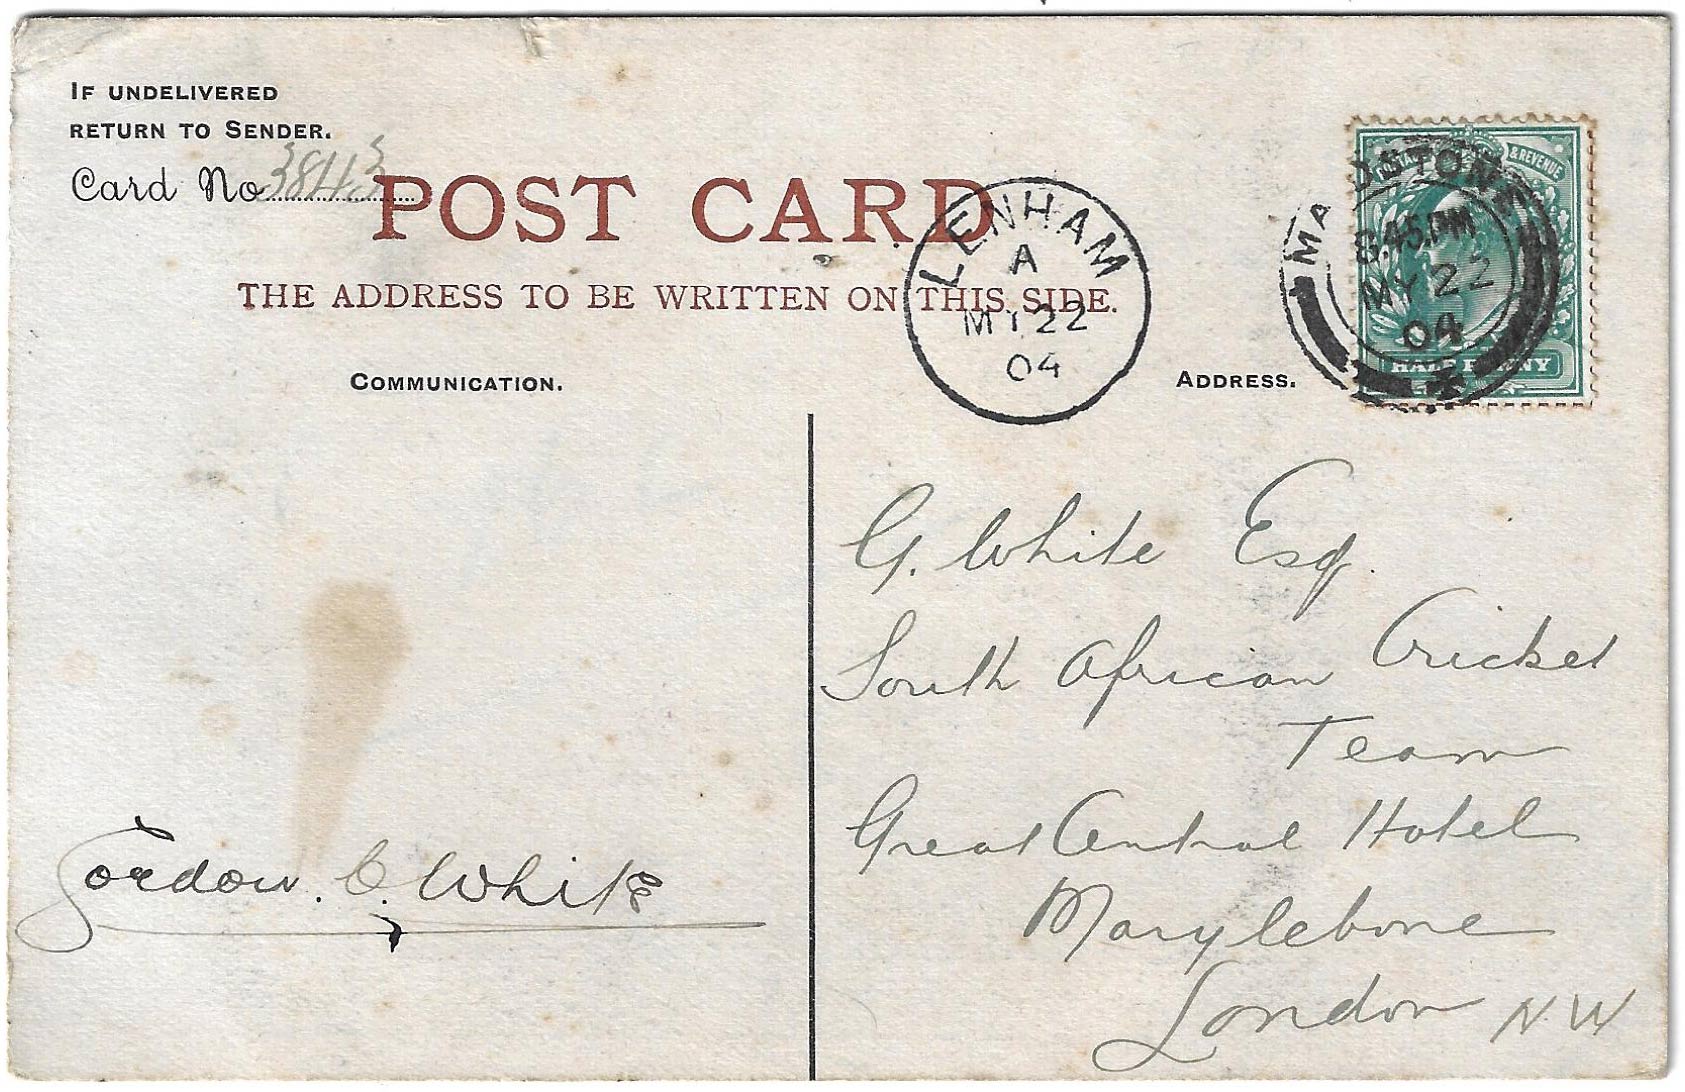 IF UNDELIVERED
RETURN TO SENDER.
Card No 3843
POST CARD
THE ADDRESS TO BE WRITTEN ON THIS SIDE.
COMMUNICATION.
ADDRESS.
LENHAM
A
MY 22
04
MAIDSTONE
8.45 PM
MY 22
04
POSTAGE & REVENUE
HALFPENNY
G. White Esq.
South African Cricket
Team
Great Central Hotel
Marylebone
London N.W
Gordon. C. White